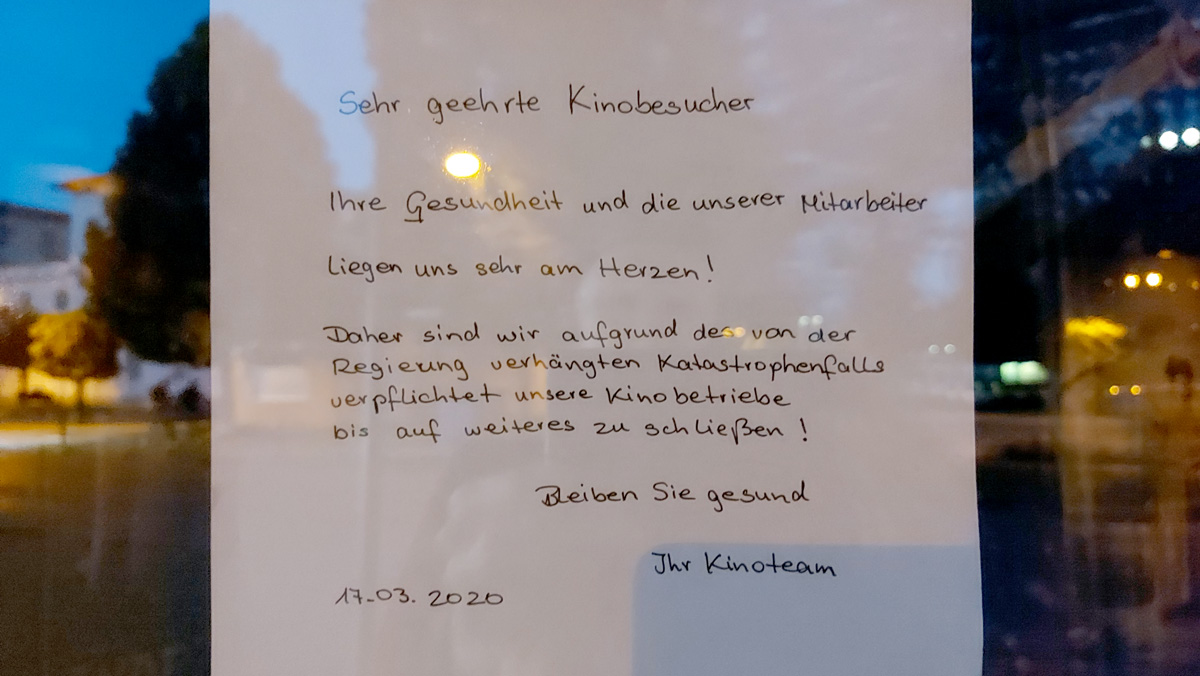 Sehr geehrte Kinobesucher
Ihre Gesundheit und die unserer Mitarbeiter
liegen uns sehr am Herzen!
Daher sind wir aufgrund des von der
Regierung verhängten Katastrophenfalls
verpflichtet unsere Kinobetriebe
bis auf weiteres zu schließen!
Bleiben Sie gesund
Ihr Kinoteam
17.03.2020